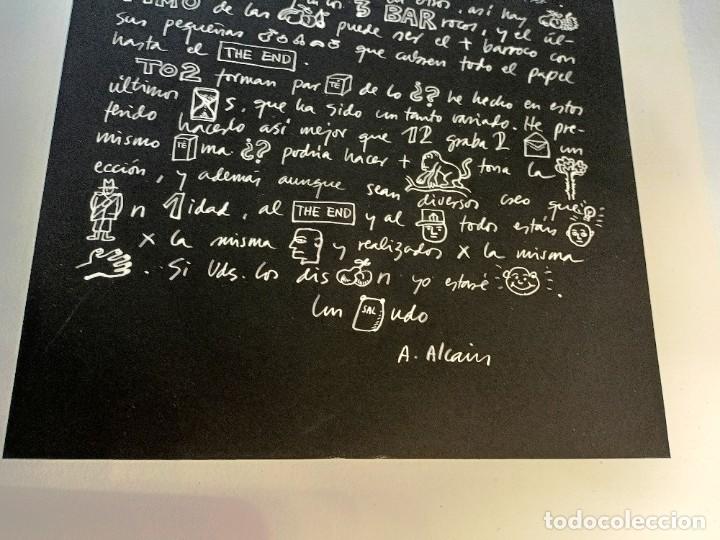 TIMO de las 3 BAR rocos, así hay
sus pequeñas puede ser el + barroco con
hasta el THE END que cubren todo el papel
TO2 forman par TÉ de lo ¿? he hecho en estos
últimos s, que ha sido un tanto variado. He pre-
ferido hacerlo así mejor que 12 graba 2 un
mismo TÉ ma. ¿? podría hacer + tona la
ección, y además aunque sean diversos creo que
n 1idad, al THE END y al todos están
x la misma y realizados x la misma
. Si Uds. los dis n yo estaré .
Un SAL udo
A. Alcain
todocoleccion